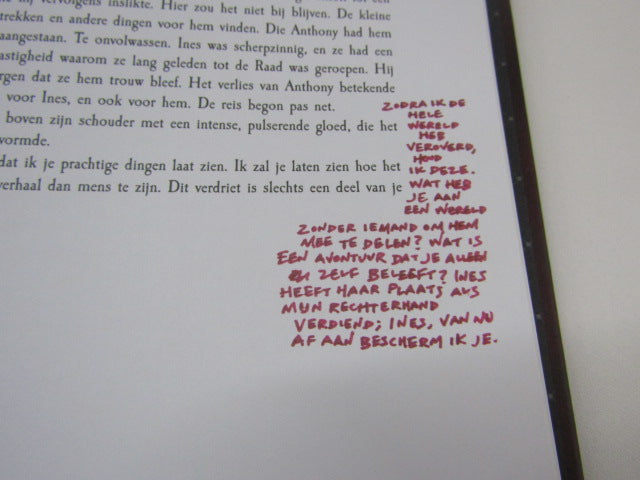 vervolgens inslikte. Hier zou het niet bij blijven. De kleine
trekken en andere dingen voor hem vinden. Die Anthony had hem
aangestaan. Te onvolwassen. Ines was scherpzinnig, en ze had een
astigheid waarom ze lang geleden tot de Raad was geroepen. Hij
rgen dat ze hem trouw bleef. Het verlies van Anthony betekende
voor Ines, en ook voor hem. De reis begon pas net.
boven zijn schouder met een intense, pulserende gloed, die het
vormde.
dat ik je prachtige dingen laat zien. Ik zal je laten zien hoe het
erhaal dan mens te zijn. Dit verdriet is slechts een deel van je
ZODRA IK DE
HELE
WERELD
HEB
VEROVERD,
HOUD
IK DEZE.
WAT HEB
JE AAN
EEN WERELD
ZONDER IEMAND OM HEM
MEE TE DELEN? WAT IS
EEN AVONTUUR DAT JE ALLEEN
ZELF BELEEFT? INES
HEEFT HAAR PLAATS ALS
MIJN RECHTERHAND
VERDIEND; INES, VAN NU
AF AAN BESCHERM IK JE.